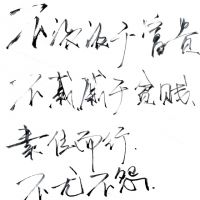 不汲汲于富贵
不戚戚于贫贱.
素位而行.
不尤不怨.